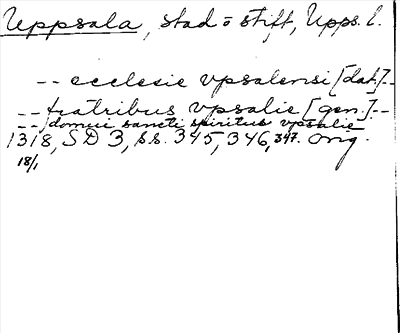 Uppsala, stad o stift, Upps. l.
-- ecclesie vpsalensi [dat.] --
-- fratribus vpsalie [gen.] --
-- domui sancti spiritus vpsalie
1318, SD 3, ss. 345, 346, 347. orig.
18/1